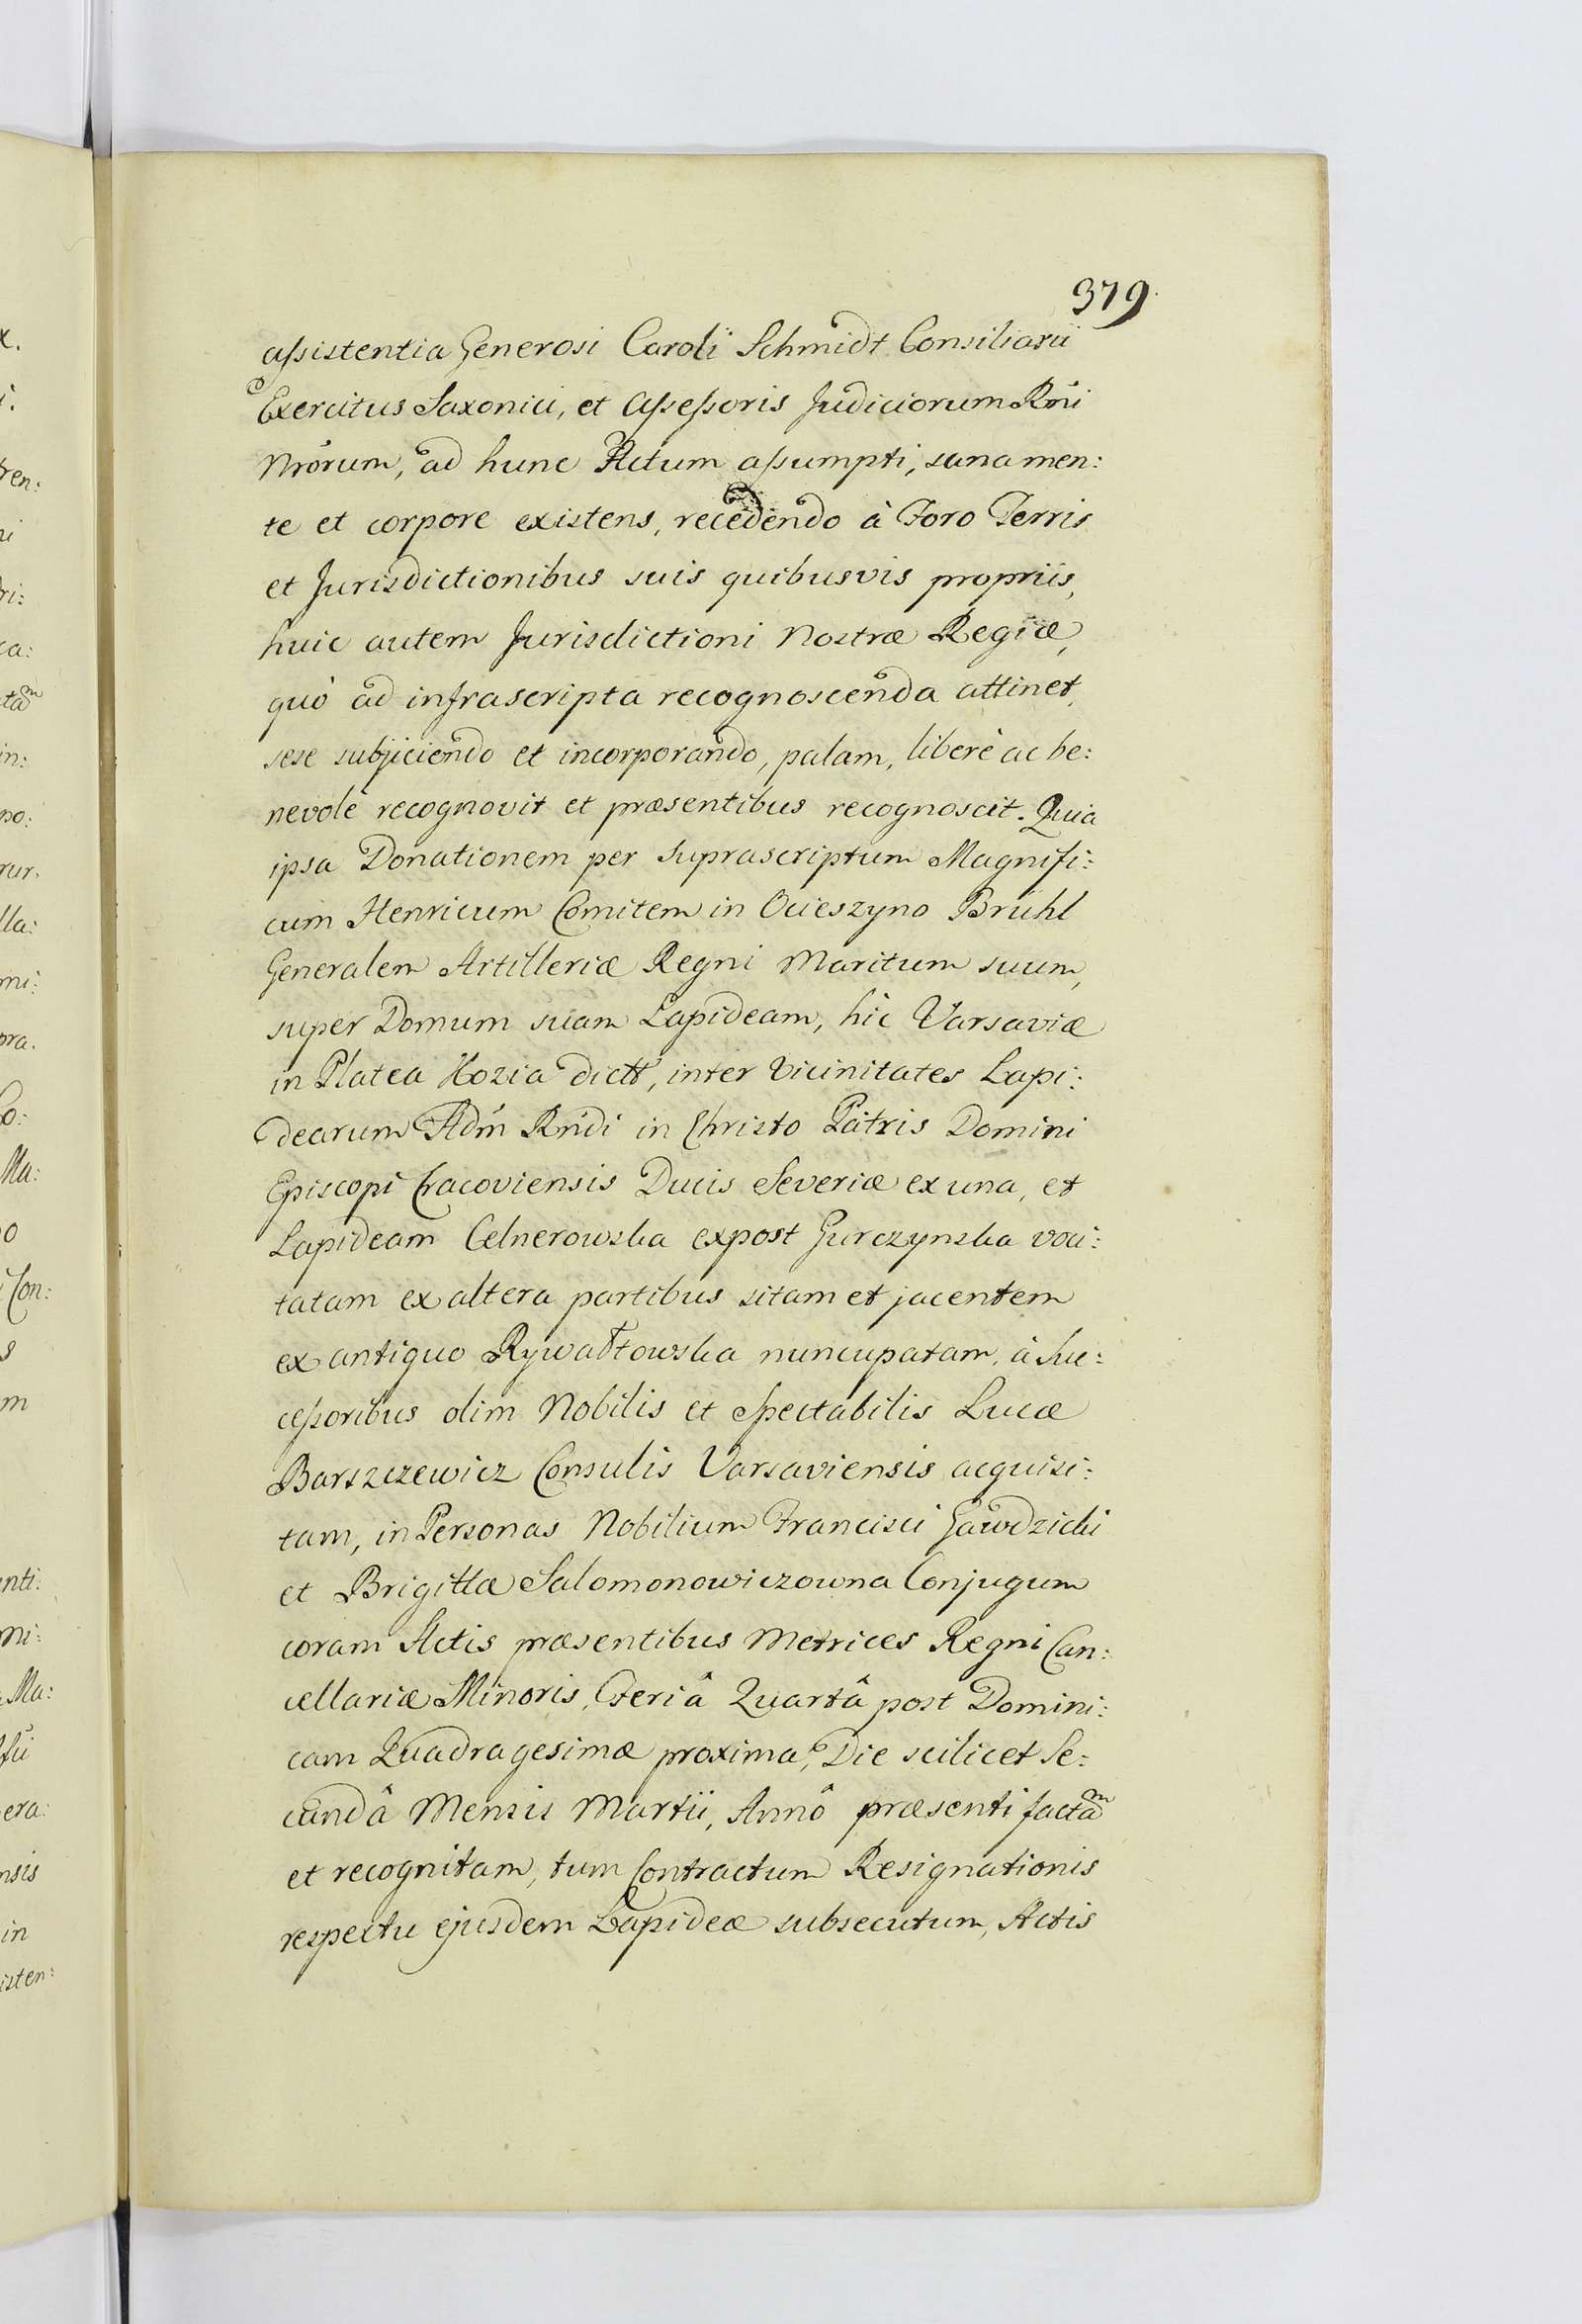 379.
assistentia Generosi Caroli Schmidt Consiliarii
Exercitus Saxonici, et Assessoris Judiciorum Rni
Nrorum, ad hunc Actum assumpti, sana men:
te et corpore existens, recedendo à Foro Terris
et Jurisdictionibus suis quibusvis propriis,
huic autem Jurisdictioni Nostræ Regiæ,
quò ad infrascripta recognoscenda attinet,
sese subjiciendo et incorporando, palam, liberè ac be:
nevolè recognovit et præsentibus recognoscit. Quia
ipsa Donationem per suprascriptum Magnifi:
cum Henricum Comitem in Ocieszyno Brühl
Generalem Artilleriæ Regni Maritum suum,
super Domum suam Lapideam, hic Varsaviæ
in Platea Kozia dictt, inter Vicinitates Lapi:
dearum Adm Rndi in Christo Patris Domini
Episcopi Cracoviensis Ducis Severiæ ex una, et
Lapideam Celnerowska expost Gurczynska voci:
tatam ex altera partibus sitam et jacentem
ex antiquo Rywałtowska nuncupatam, à Suc:
cessoribus olim Nobilis et Spectabilis Lucæ
Barszczewicz Consulis Varsaviensis acquisi:
tam, in Personas Nobilium Francisci Gawdzicki
et Brigittæ Salomonowiczowna Conjugum
coram Actis præsentibus Metrices Regni Can:
cellariæ Minoris, Feriâ Quartâ post Domini:
cam Quadragesimæ proxima, Die scilicet Se:
cundâ Mensis Martii, Annô præsenti factam
et recognitam, tum Contractum Resignationis
respectu ejusdem Lapideæ subsecutum, Actis